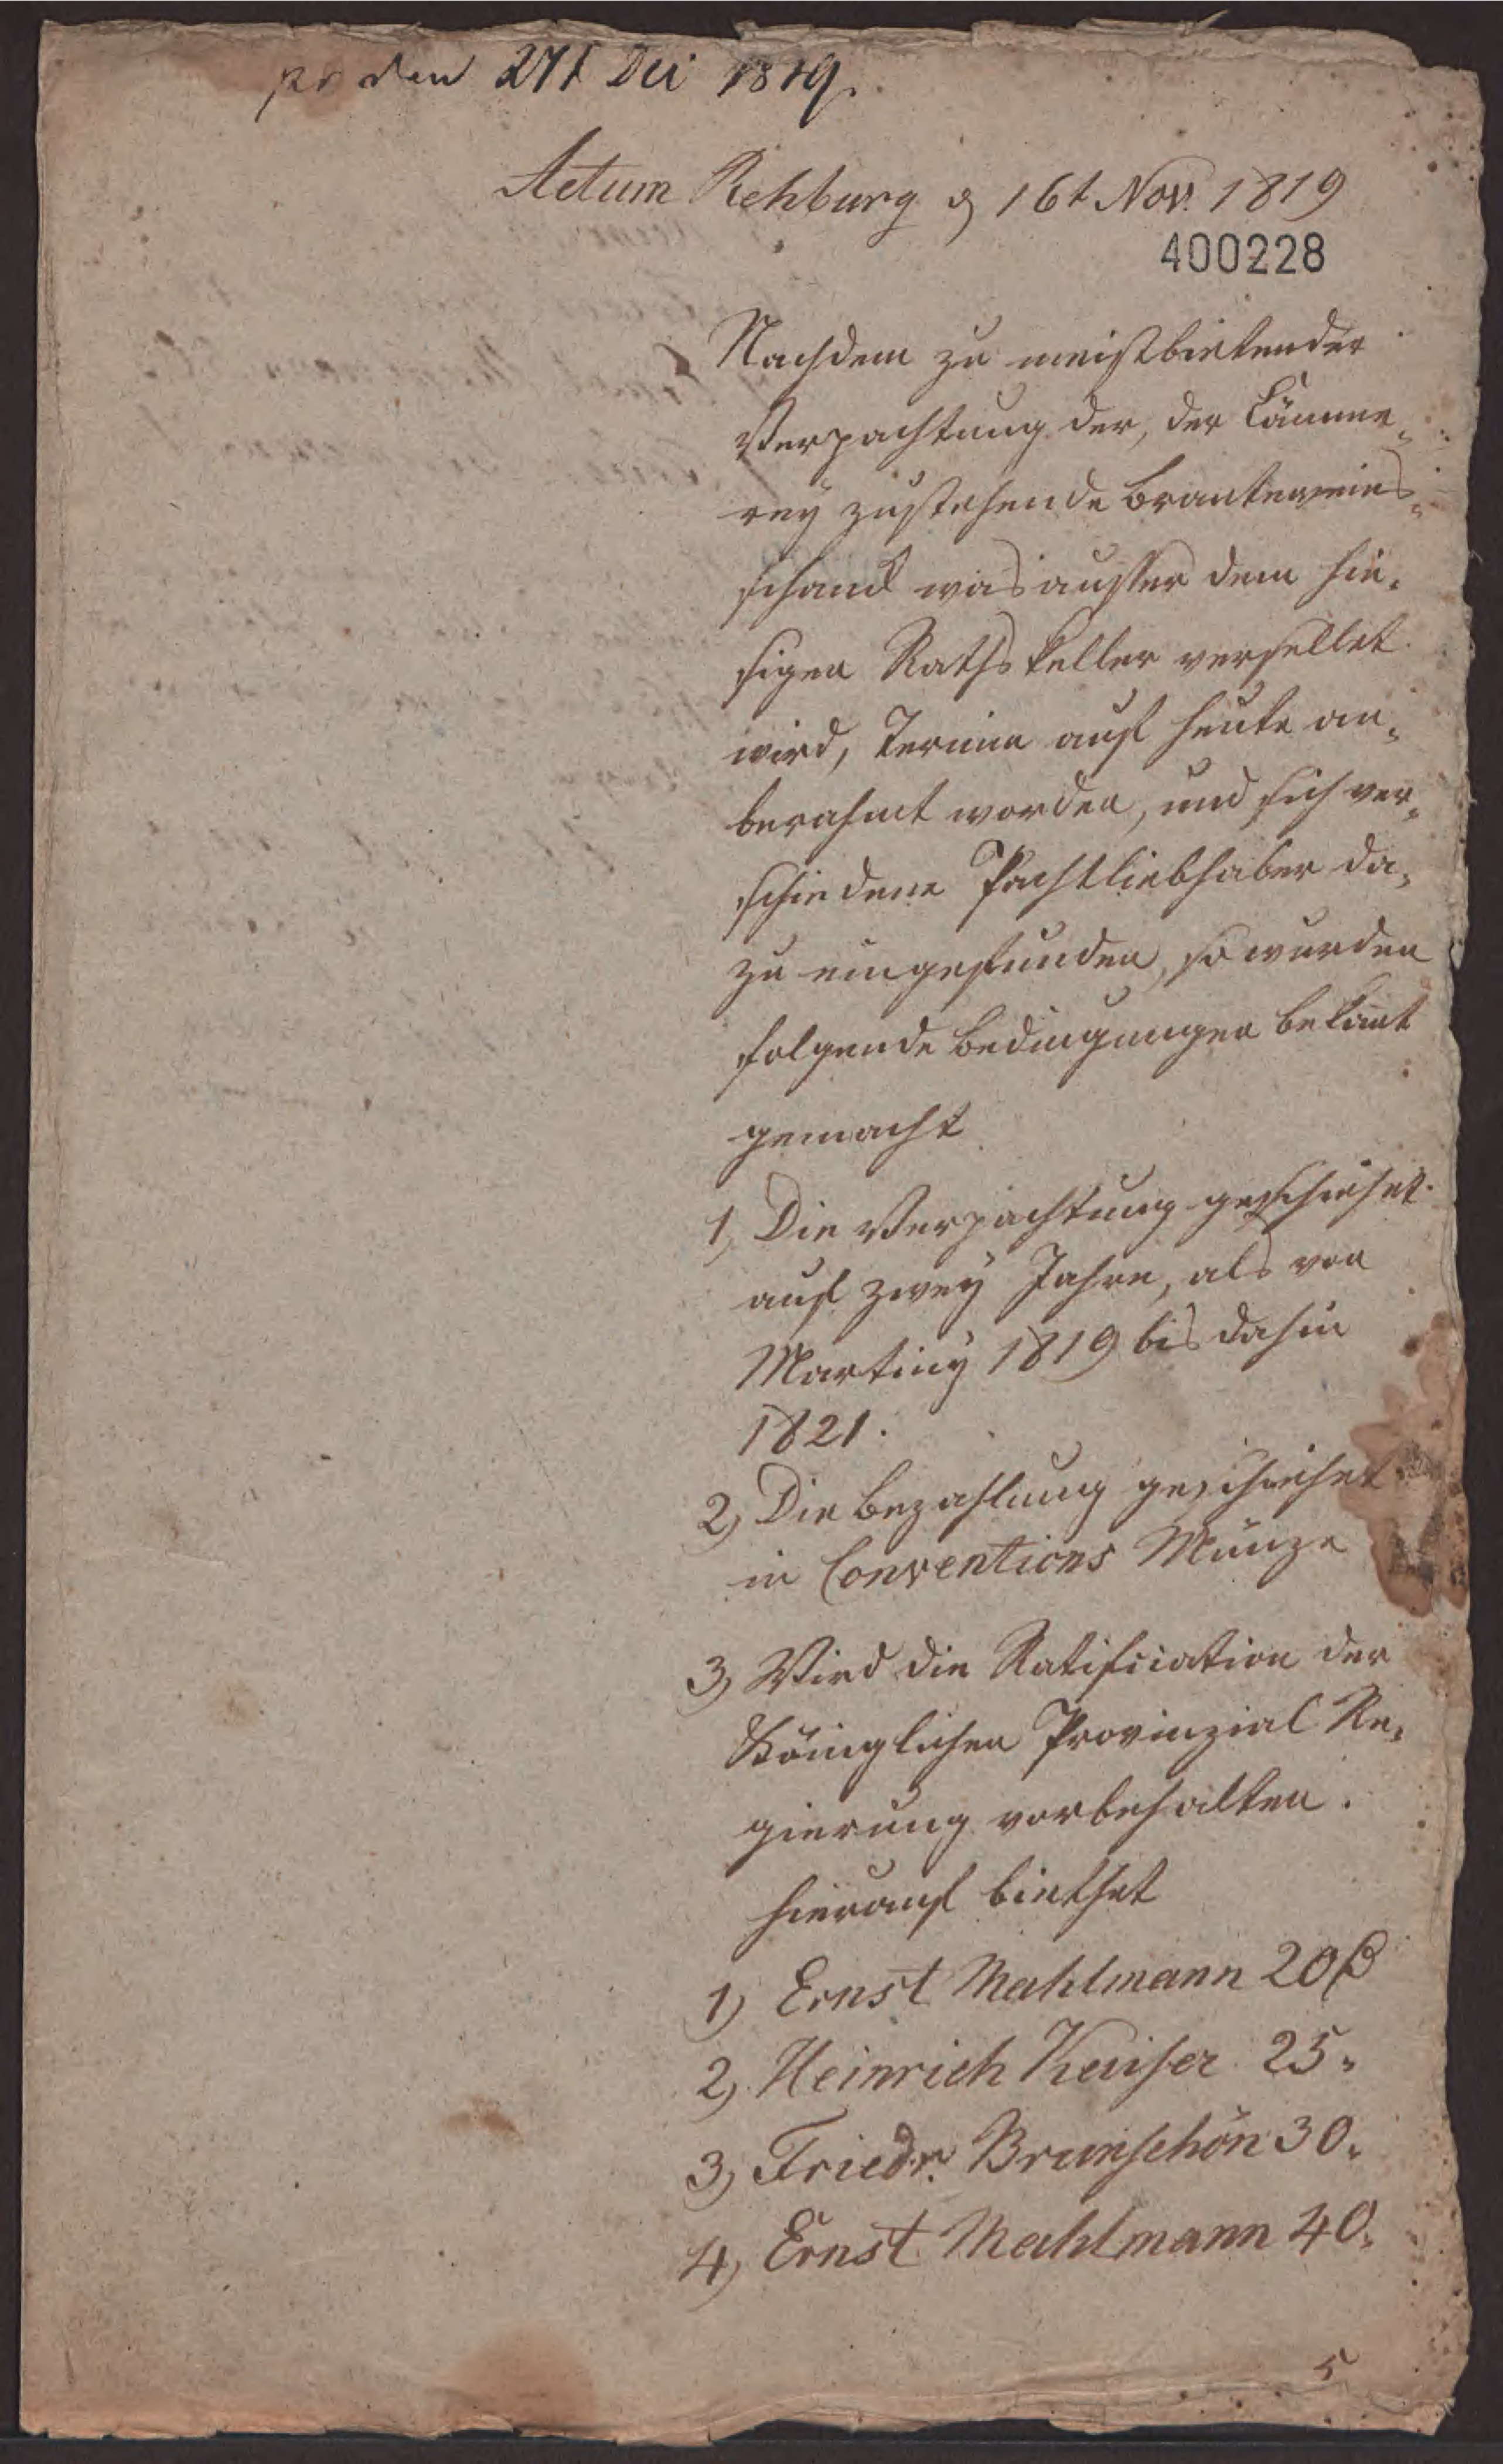 pr den 27t Dec 1819.
Actum Rehburg d 16t Nov. 1819
400228
Nachdem zu meistbietender
Verpachtung der, der Cämme-
rey zustehende Brantewein-
schanck was ausser dem hie-
sigen Rathskeller versellet
wird, Termin auf heute an-
berahmt worden, und sich ver-
schiedene Pachtliebhaber da-
zu eingefunden, so wurden
folgende Bedingungen bekant
gemacht
1, Die Verpachtung geschiehet
auf zwey Jahre, als von
Martiny 1819 bis dahin
1821.
2, Die Bezahlung geschiehet
in Conventions Münze
3, Wird die Ratification der
Königlichen Provinzial Re-
gierung vorbehalten.
hierauf biethet
1) Ernst Mahlmann 20
2, Heinrich Keuser 25 "
3, Friedr. Brunschön 30 "
4, Ernst Mahlmann 40 "
5